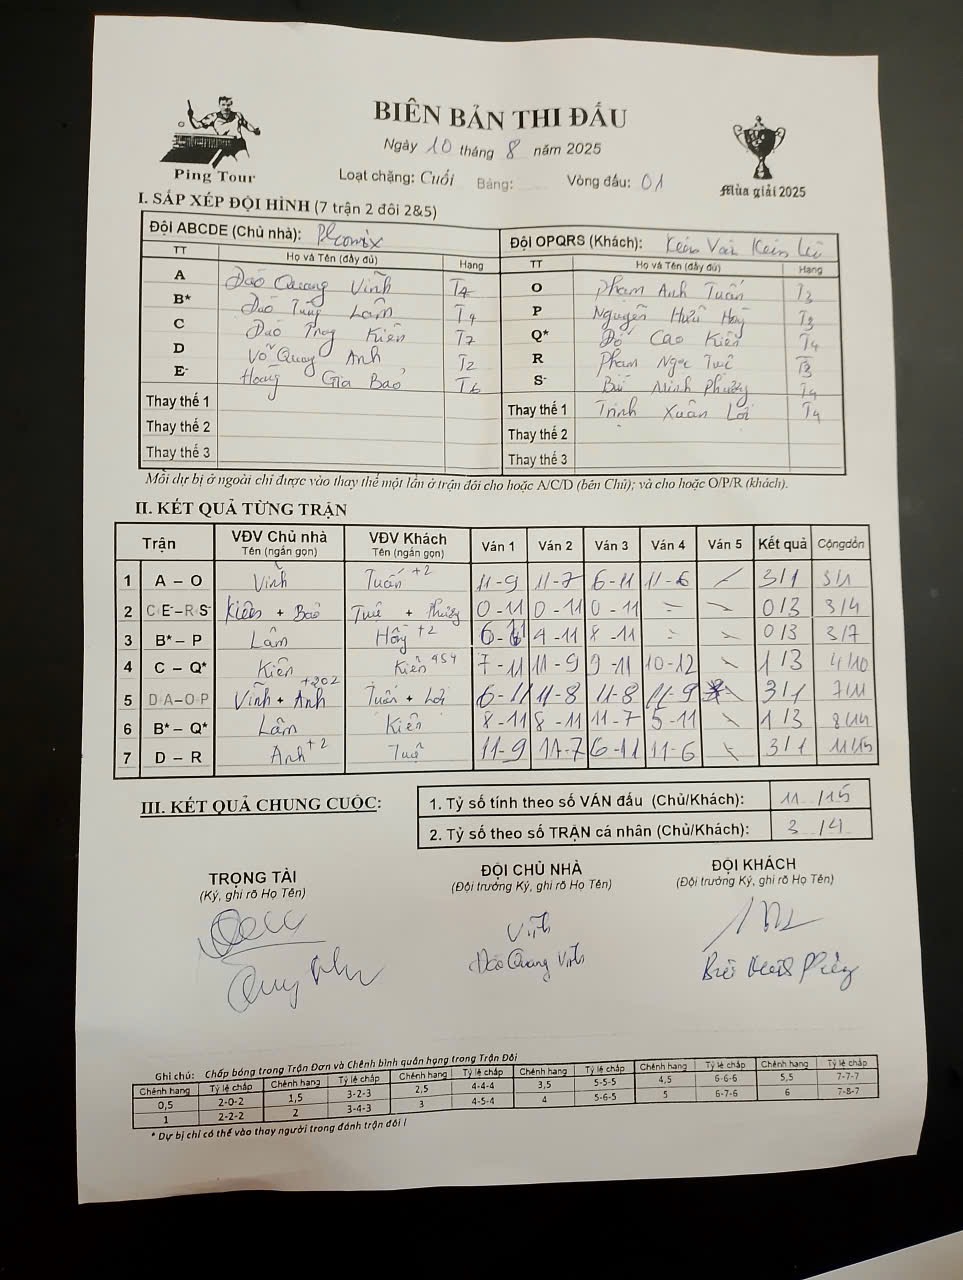 BIÊN BẢN THI ĐẤU
Ping Tour
Ngày 10 tháng 8 năm 2025
Mùa giải 2025
Loạt chặng: Cuối Bảng: Vòng đấu: 01
I. SẮP XẾP ĐỘI HÌNH (7 trận 2 đôi 2&5)
Đội ABCDE (Chủ nhà): Đội OPQRS (Khách):
TT Họ và Tên (đầy đủ) Hạng TT Họ và Tên (đầy đủ) Hạng
A Đào Quang Vinh O Phạm Anh Tuấn T3
B* Đào Tùng Lâm T4 P Nguyễn Hữu T3
C Đào Kiên T7 Q* Đỗ Cao Kiên T4
D Võ Quang Anh T2 R Phạm Ngọc Tuệ T3
E- Hoàng Gia Bảo T6 S- Bùi Minh Phương T4
Thay thế 1 Thay thế 1 Trịnh Xuân Lợi T4
Thay thế 2 Thay thế 2
Thay thế 3 Thay thế 3
Mỗi dự bị ở ngoài chỉ được vào thay thế một lần ở trận đôi cho hoặc A/C/D (bên Chủ); và cho hoặc O/P/R (khách).
II. KẾT QUẢ TỪNG TRẬN
Trận VĐV Chủ nhà Tên (ngắn gọn) VĐV Khách Tên (ngắn gọn) Ván 1 Ván 2 Ván 3 Ván 4 Ván 5 Kết quả Cộng dồn
1 A – O Vinh Tuấn +2 11-9 11-7 6-11 11-6 3/1 3/1
2 C E- – R S- Kiên + Bảo Tuệ + Phương 0-11 0-11 0-11 0/3 3/4
3 B* – P Lâm +2 4-11 8-11 0/3 3/7
4 C – Q* Kiên Kiên 454 7-11 11-9 9-11 10-12 1/3 4/10
5 D A – O P Vinh + Anh +202 Tuấn + Lợi 6-11 11-8 11-8 11-9 3/1 7/11
6 B* – Q* Lâm Kiên 8-11 8-11 11-7 5-11 1/3 8/14
7 D – R Anh +2 Tuệ 11-9 11-7 6-11 11-6 3/1 11/15
III. KẾT QUẢ CHUNG CUỘC:
1. Tỷ số tính theo số VÁN đấu (Chủ/Khách): 11 /15
2. Tỷ số theo số TRẬN cá nhân (Chủ/Khách): 3 /4
TRỌNG TÀI ĐỘI CHỦ NHÀ ĐỘI KHÁCH
(Ký, ghi rõ Họ Tên) (Đội trưởng Ký, ghi rõ Họ Tên) (Đội trưởng Ký, ghi rõ Họ Tên)
Vinh
Đào Quang Vinh
Ghi chú: Chấp bóng trong Trận Đơn và Chênh bình quân hạng trong Trận Đôi
Chênh hạng Tỷ lệ chấp Chênh hạng Tỷ lệ chấp Chênh hạng Tỷ lệ chấp Chênh hạng Tỷ lệ chấp Chênh hạng Tỷ lệ chấp Chênh hạng Tỷ lệ chấp
0,5 2-0-2 1,5 3-2-3 2,5 4-4-4 3,5 5-5-5 4,5 6-6-6 5,5 7-7-7
1 2-2-2 2 3-4-3 3 4-5-4 4 5-6-5 5 6-7-6 6 7-8-7
* Dự bị chỉ có thể vào thay người trong đánh trận đôi !